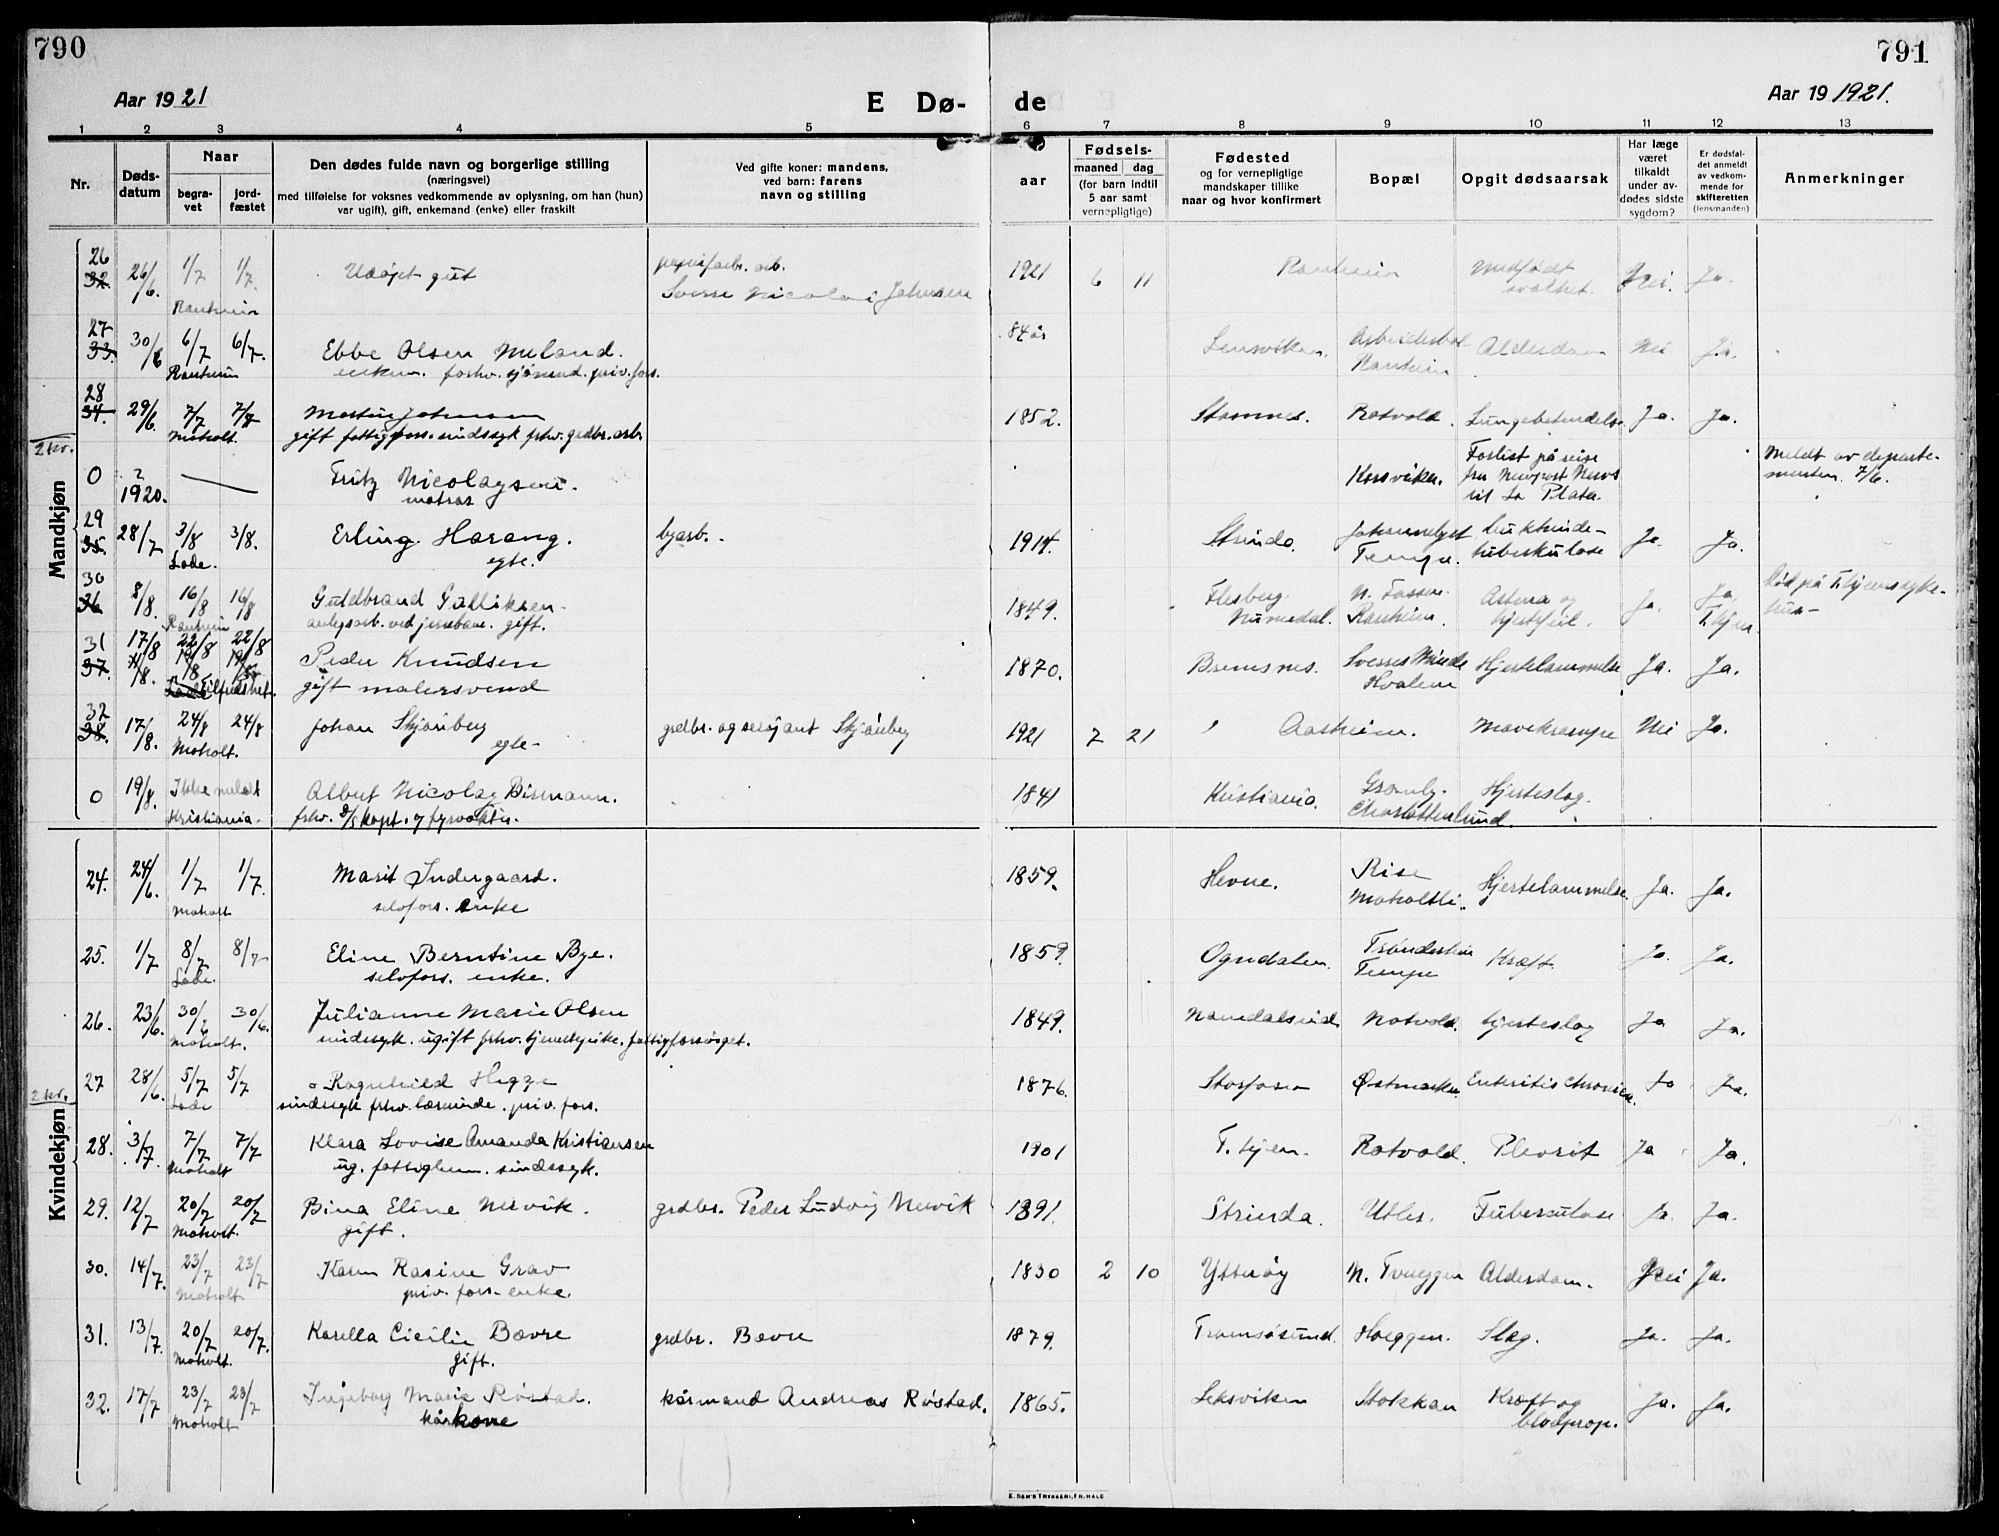 790
791
Aar 1921
E Dø-
de
Aar 19 1921.
1 2 3 4 5 6 7 8 9 10 11 12 13
Nr.
Døds-
datum
Naar
begra-
vet
jord-
fæstet
Den dødes fulde navn og borgerlige stilling
(næringsvei)
med tilføielse for voksnes vedkommende av oplysning, om han (hun)
var ugift), gift, enkemand (enke) eller fraskilt
Ved gifte koner: mandens,
ved barn: farens
navn og stilling
Fødsels-
aar
maaned
dag
(for barn indtil
5 aar samt
vernepligtige)
Fødested
og for vernepligtige
mandskaper tillike
naar og hvor konfirmert
Bopæl
Opgit dødsaarsak
Har læge
været
tilkaldt
under av-
dødes sidste
sygdom?
Er dødsfal-
det anmeldt
av vedkom-
mende for
skifteretten
(lensmanden)
Anmerkninger
Mandkjøn
26
32. 26/6. 1/7 1/7. Udøpt gut
Sverre Nicolai Johnsen 1921 6 11 Ranheim Medfødt svakhet. Nei. Ja.
Ranheim
27
33. 30/6 6/7 6/7. Ebbe Olsen Meland. 84 år Lensviken. Ranheim Alderdom Nei Ja.
Ranheim enkem. forhv. sjømand. priv. fors.
28
34. 29/6. 7/7 7/7 Martin Johnsen 1852. Stamnes. Rotvold. Lungebetændelse Ja. Ja.
Moholt. gift fattigfors. sindssyk fhv. grdbr. arb.
2 kv.
0 ? 1920. — Fritz Nicolaysen. matros Korsviken. Forlist på reise
fra Newport News
til La Plata.
Meldt av departe-
menten 7/6.
29
35. 28/7 3/8 3/8. Erling Harang. byarb. 1914. Strinda. Johannelyst Tempe. Lukthinde-
tuberkulose Ja. Ja.
Lade. egte.
30
36 8/8. 16/8 16/8 Guldbrand Gulliksen. 1849. Flesberg Numedal. N. Fossen Ranheim. Astma og hjertefeil. Ja. Ja T.hjem
Ranheim anlegsarb. ved jernbane. gift.
Død på T.hjems syke-
hus-
31
37. 17/8 22/8 22/8 Peder Knudsen 1870. Bremsnes. Sverres Minde Hvalem Hjertelammelse Ja. Ja.
gift malersvend
32
38. 17/8. 24/8 24/8 Johan Skjønberg grdbr. og sersjant Skjønberg 1921 7 21 Aasheim. Mavekrampe Nei Ja.
Moholt. egte-
0 19/8. Ikke meldt Albert Nicolay Bismann. 1841 Kristiania. Granly. Charlottenlund. Hjerteslag.
Kristiania. fhv. D/S kapt. og fyrvokter.
Kvindekjøn
24. 24/6. 1/7 1/7. Marit Indergaard. 1859. Hevne. Rise Moholtli. Hjertelammelse Ja. Ja.
Moholt selvfors. enke
25. 1/7 8/7 8/7 Eline Berntine Bye. 1859. Ogndalen. Trøndesheim Tempe Kræft. Ja. Ja.
Lade. selvfors. enke.
26. 23/6. 30/6 30/6. Julianne Marie Olsen 1849. Namdalseid Rotvold. hjerteslag Ja Ja.
Moholt. sindssyk. ugift fhv. tjenestepike. fattigforsørget.
27 28/6. 5/7 5/7 Ragnhild Hegge 1876. Storfosen Østmarken Enteritis chronica. Ja Ja.
Lade sindssyk fhv. lærerinde. priv. fors.
2 kv.
28. 3/7. 7/7 7/7 Klara Lovise Amanda Kristiansen 1901 T.hjem. Rotvold. Plevrit Ja Ja.
Moholt ug. fattiglem. sindssyk.
29. 12/7 20/7 20/7 Bina Eline Nervik. grdbr. Peder Ludvig Nervik 1891. Strinda. Utler. Tuberkulose Ja. Ja.
Moholt. gift.
30. 14/7. 23/7 23/7 Karen Rasine Grav 1830 2 10 Ytterøy N. Tveggen Alderdom. Nei Ja.
Moholt. priv. fors. enke.
31. 13/7. 20/7 20/7. Karella Cicilie Bævre grdbr. Bævre 1879. Tromsøsund. Hoeggen. Slag. Ja. Ja.
Moholt. gift.
32. 17/7 23/7 23/7 Ingeborg Marie Røstad. kårmand Andreas Røstad. 1865. Leksviken Stokkan Kræft og
blodprop. Ja. Ja.
Moholt kårkone
E. SEM'S TRYKKERI, FR.HALD